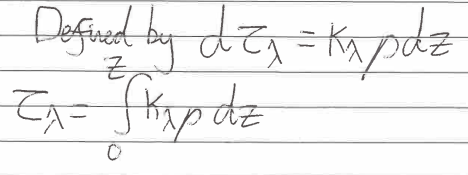 Defined by dτ_λ = k_λ ρ dz
τ_λ = ∫₀ᶻ k_λ ρ dz